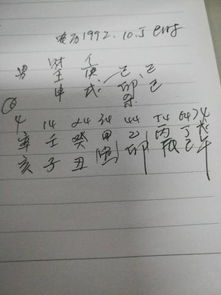 1992.10.5
男
壬 庚 己 己
申 戌 卯 巳
4 14 24 34 44 54 64 74
辛 壬 癸 甲 乙 丙 丁
亥 子 丑 寅 卯 辰 巳 午